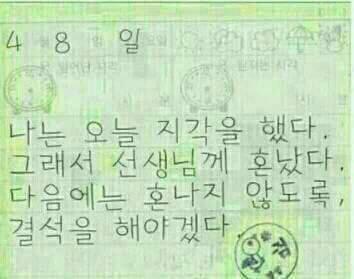 4 8 일
나는 오늘 지각을 했다.
그래서 선생님께 혼났다.
다음에는 혼나지 않도록,
결석을 해야겠다.